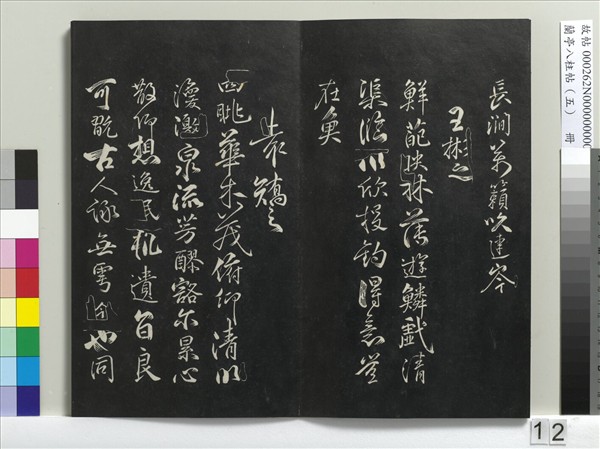 故帖 000262N000000000
蘭亭八柱帖（五） 冊
長澗萬籟吹連岑
王彬之
鮮葩映林薄遊鱗戲清
渠臨川欣投釣得意豈
在魚
袁嶠之
四眺華木茂俯仰清川
渙激泉流芳醪豁尔累心
散仰想逸民軌遺音良
可翫古人詠無雩今也同
12